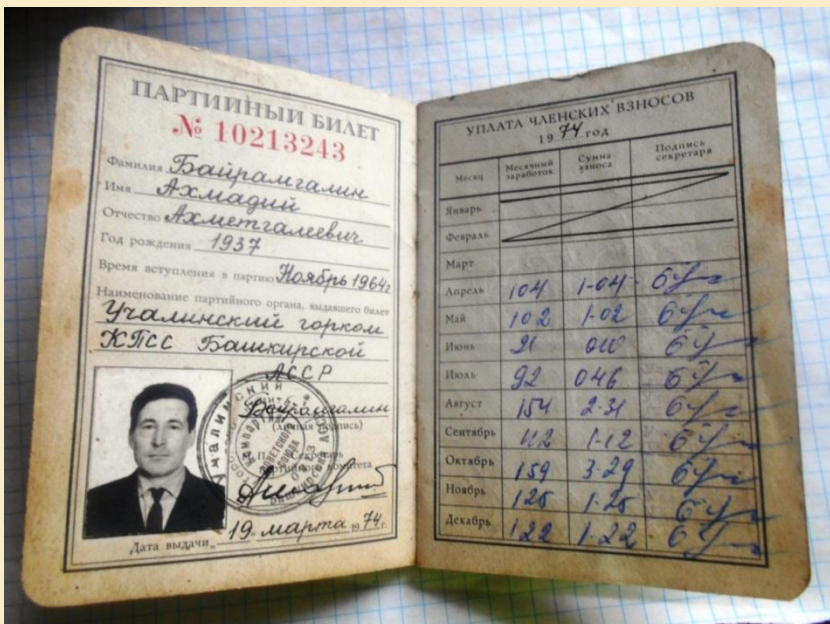 ПАРТИЙНЫЙ БИЛЕТ
№ 10213243
Фамилия Байрамгалин
Имя Ахмадий
Отчество Ахметгалеевич
Год рождения 1937
Время вступления в партию Ноябрь 1964г
Наименование партийного органа, выдавшего билет
Учалинский горком
КПСС Башкирской
АССР
Байрамгалин
(Личная подпись)
Секретарь
партийного комитета
Дата выдачи „19„ марта 1974 г.
УПЛАТА ЧЛЕНСКИХ ВЗНОСОВ
1974 год
Месяц Месячный заработок Сумма взноса Подпись секретаря
Январь
Февраль
Март
Апрель 104 1-04
Май 102 1-02
Июнь 21 010
Июль 92 046
Август 154 2-31
Сентябрь 112 1-12
Октябрь 159 3-29
Ноябрь 125 1-25
Декабрь 122 1-22